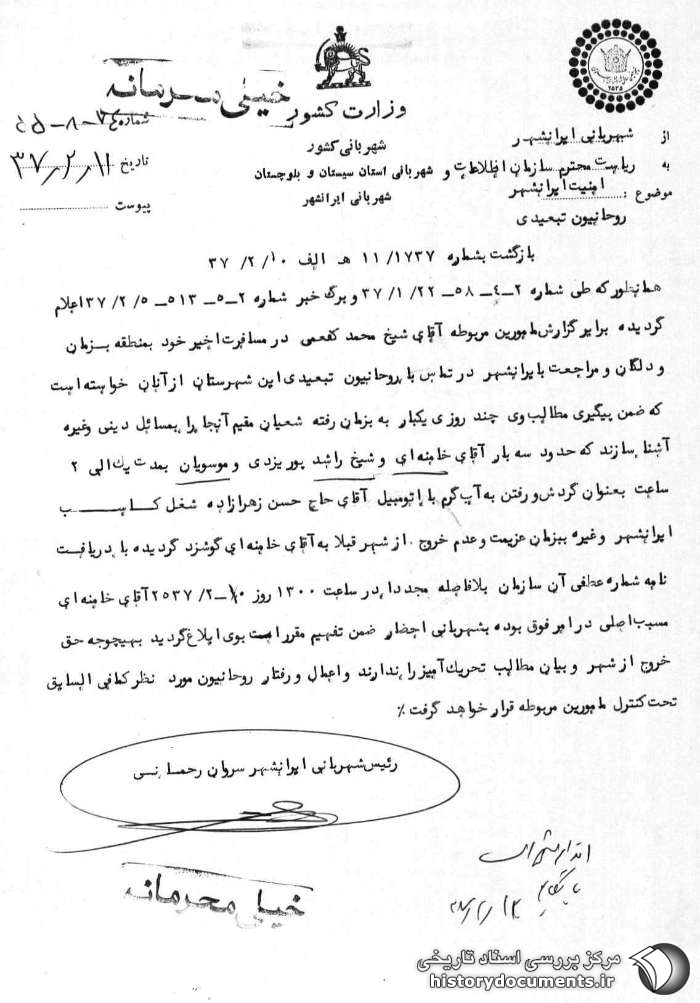 خیلی محرمانه
وزارت کشور
شهربانی کشور
شهربانی استان سیستان و بلوچستان
شهربانی ایرانشهر
۲۵۳۵
از شهربانی ایرانشهر
به ریاست محترم سازمان اطلاعات و
امنیت ایرانشهر
موضوع : روحانیون تبعیدی
شماره
تاریخ ۳۷/۲/۱۱
پیوست
بازگشت بشماره ۱۱/۱۷۳۷ هـ الف ۳۷/۲/۱۰
همانطور که طی شماره ۲-۴-۵۸- ۳۷/۱/۲۲ و برگ خبر شماره ۲-۵-۵۱۳- ۳۷/۲/۵ اعلام
گردیده برابر گزارش مامورین مربوطه آقای شیخ محمد کفعمی در مسافرت اخیر خود بمنطقه بزمان
و دلگان و مراجعت بایرانشهر در تماس با روحانیون تبعیدی این شهرستان از آنان خواسته است
که ضمن پیگیری مطالب وی چند روزی یکبار به بزمان رفته شعیان مقیم آنجا را بمسائل دینی وغیره
آشنا سازند که حدود سه بار آقای خامنه ای و شیخ راشد پور یزدی و موسویان بمدت یک الی ۲
ساعت بعنوان گردش و رفتن به آب گرم با اتومبیل آقای حاج حسن زهرازاده شغل کاسب
ایرانشهر وغیره ببزمان عزیمت وعدم خروج از شهر قبلا به آقای خامنه ای گوشزد گردیده با دریافت
نامه شماره عطفی آن سازمان بلافاصله مجددا در ساعت ۱۳۰۰ روز ۱۰-۲۵۳۷/۲ آقای خامنه ای
مسبب اصلی در امر فوق بوده بشهربانی احضار ضمن تفهیم مقررات بوی ابلاغ گردید بهیچوجه حق
خروج از شهر و بیان مطالب تحریک آمیز را ندارند و اعمال و رفتار روحانیون مورد نظر کمافی السابق
تحت کنترل مامورین مربوطه قرار خواهد گرفت ٪
رئیس شهربانی ایرانشهر سروان
خیلی محرمانه
مرکز بررسی اسناد تاریخی
historydocuments.ir